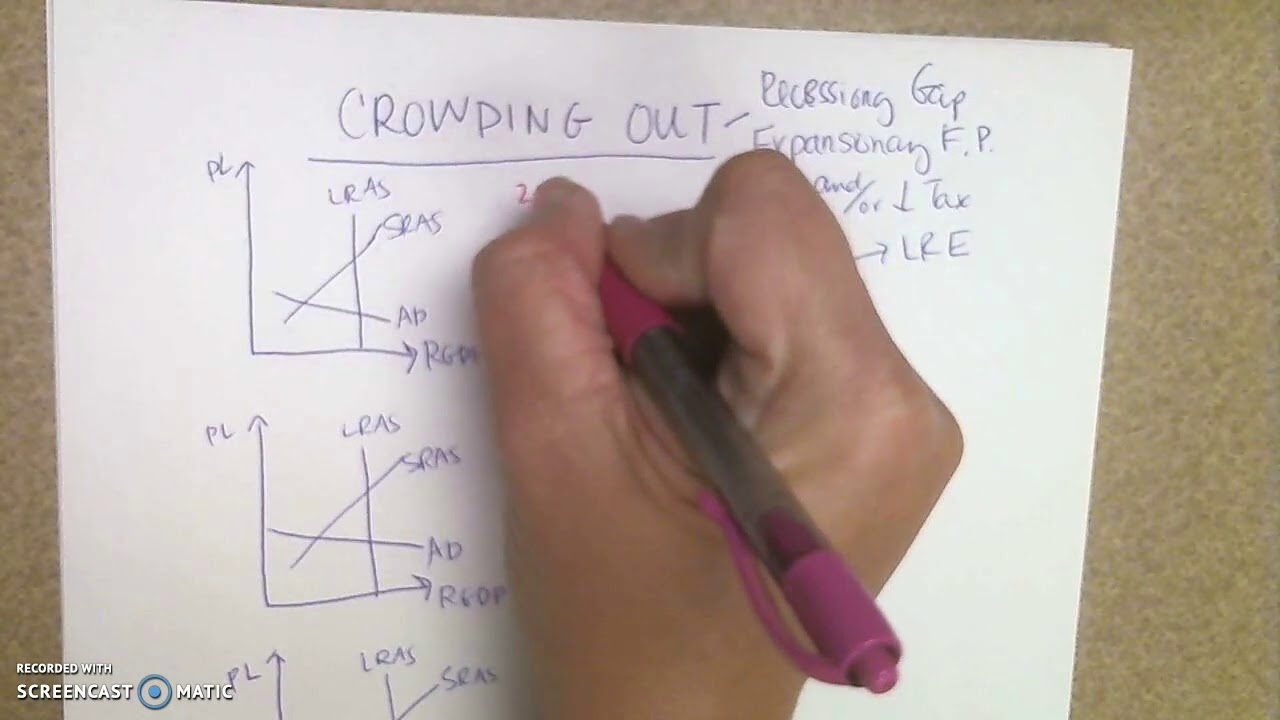 CROWDING OUT - Recessionary Gap
Expansionary F.P.
and/or ↓ Tax
→ LRE
PL
LRAS
SRAS
AD
RGDP
PL
LRAS
SRAS
AD
RGDP
PL
LRAS
SRAS
2
RECORDED WITH
SCREENCAST MATIC